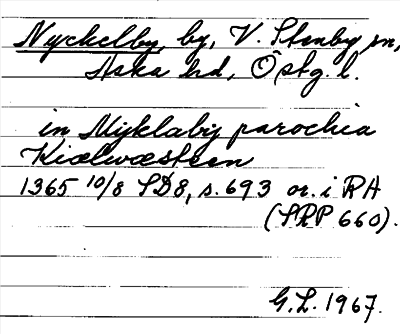 Nyckelby, by, V. Stenby sn,
Aska hd, Östg. l.
in Myklaby parochia
Kiælwæsteen
1365 10/8 SD8, s. 693 or. i RA
(SRP 660).
G.L. 1967.